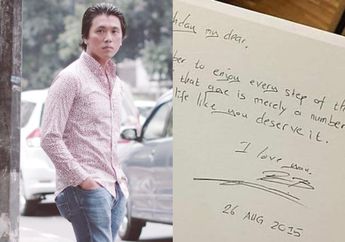 thday my dear.
ber to enjoy every step of th
that age is merely a number
life like you deserve it.
I love you.
26 AUG 2015